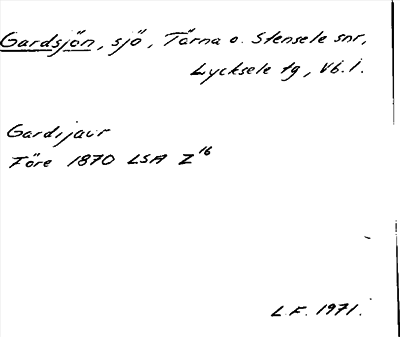 Gardsjön, sjö, Tärna o. Stensele snr,
Lycksele tg, Vb. l.
Gardijaur
Före 1870 LSA Z 16
L.F. 1971.